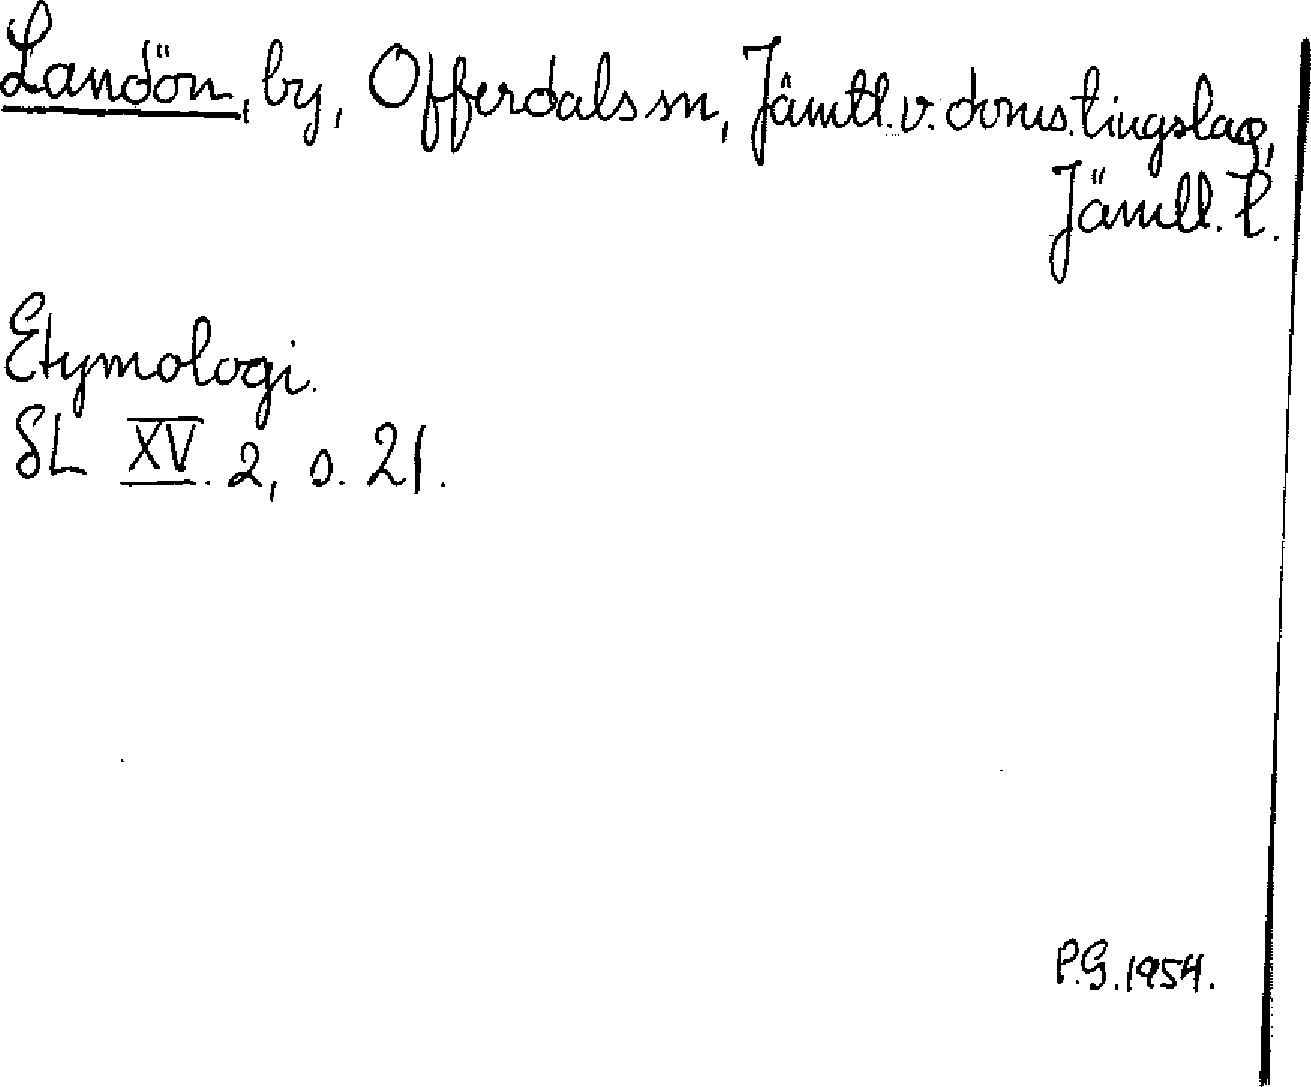 Landön, by, Offerdals sn, Jämtl. v. doms. tingslag,
Jämtl. l.
Etymologi.
SL XV. 2, s. 21.
P.G. 1954.